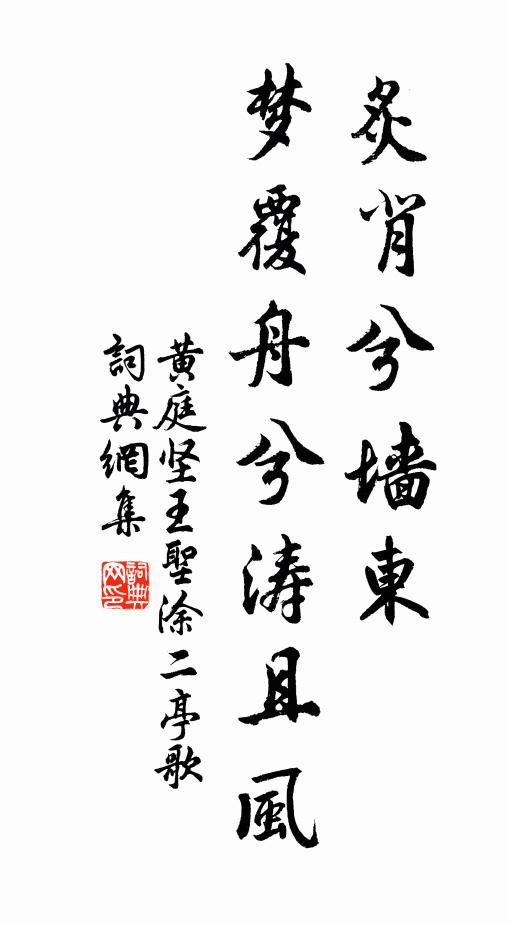 炙背兮墙東
梦覆舟兮涛且風
黄庭坚王聖涂二亭歌
詞典網集
詞典网印